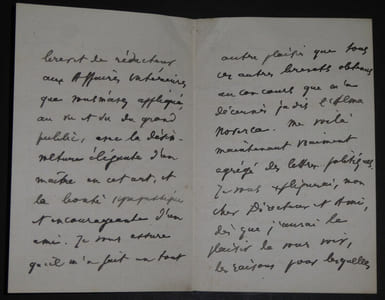 brevet de rédacteur
aux Affaires intérieures
que vous m'avez appliqué
au vu et su du grand
public, avec la désin-
volture élégante d'un
maître en cet art, et
la bonté sympathique
et encourageante d'un
ami. Je vous assure
qu'il m'a fait un tout
autre plaisir que tous
ces autres brevets obtenus
au concours que m'a
décernés jadis l'Alma
. Me voilà
maintenant vraiment
agrégé des lettres politiques.
Je vous expliquerai, mon
cher Directeur et Ami,
dès que j'aurai le
plaisir de vous voir,
les raisons pour lesquelles